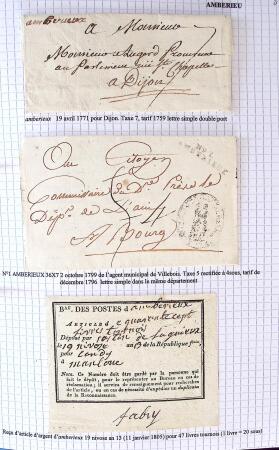 AMBERIEU
amberieux
A Monsieur
Monsieur
au Parlement
A Dijon
amberieux 19 avril 1771 pour Dijon. Taxe 7, tarif 1759 lettre simple double port
Au Citoyen
Commissaire du Dre. Près le
Dépt. de L'ain
A Bourg
N°1 AMBERIEUX 36X7 2 octobre 1799 de l'agent municipal de Villebois. Taxe 5 rectifiée à 4sous, tarif de
décembre 1796 lettre simple dans le même département
Bau. DES POSTES d'amberieux
ARTICLE d e quarante sept
livres
Déposé par
le 19 nivose an 13 de la République fran.
pour
à
NOTA. Ce Numéro doit être gardé par la personne qui
fait le dépôt, pour le représenter au Bureau en cas de
réclamation; il servira de renseignement pour rechercher
de l'article, au en cas de nécessité d'expédier un duplicata
de la Reconnaissance.
fabry
Reçu d'article d'argent d'amberieux 19 nivose an 13 (11 janvier 1805) pour 47 livres tournois (1 livre = 20 sous)